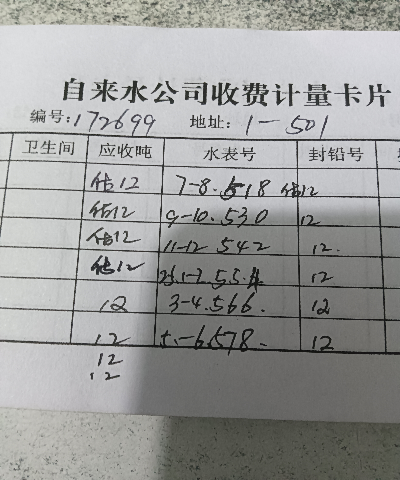 自来水公司收费计量卡片
编号:172699 地址:1-501
卫生间 应收吨 水表号 封铅号
估12 7-8. 518 估12
估12 9-10. 530 12
估12 11-12 542 12.
估12 1-2 554 12
12 3-4. 566. 12
12 5-6 578. 12
12
12